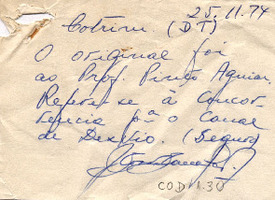 25.11.74
Cotrim (DT)
O original foi
ao Prof. Pinto Aguiar.
Refere-se à concor-
rência pª o Canal
de Desvio. (Seguro)
COD 1.30